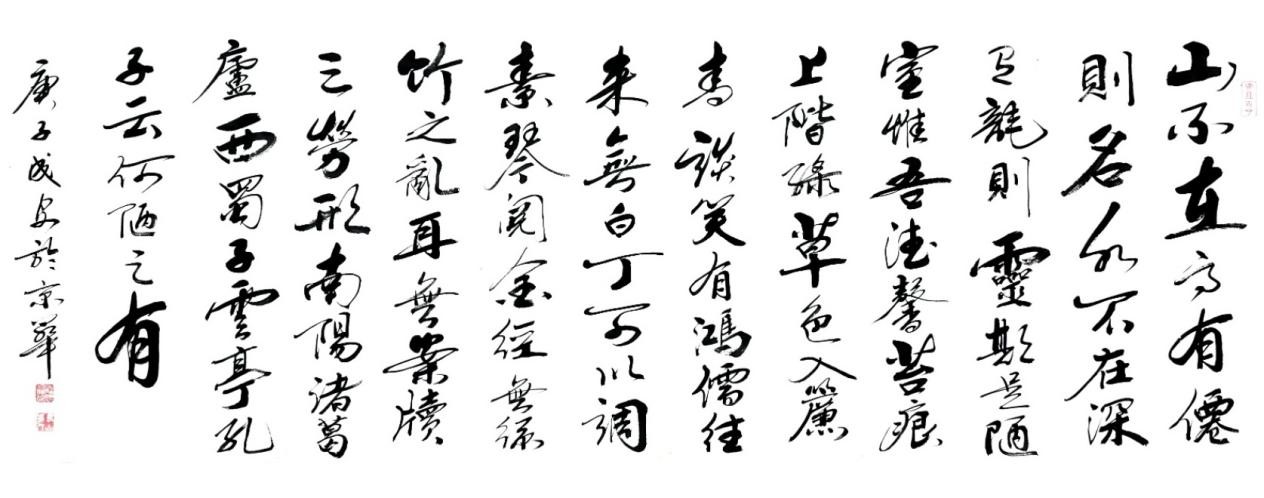 山不在高有僊
則名水不在深
有龍則靈斯是陋
室惟吾德馨苔痕
上階綠草色入簾
青談笑有鴻儒往
来無白丁可以調
素琴閱金經無絲
竹之亂耳無案牘
之勞形南陽諸葛
廬西蜀子雲亭孔
子云何陋之有
庚子成安於京華